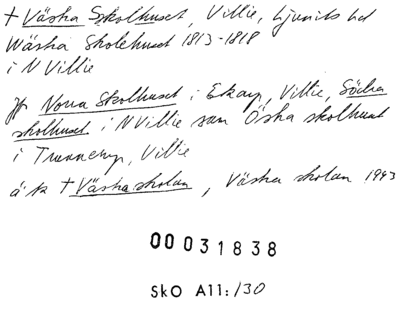 † Västra Skolhuset, Villie, Ljunits hd
Wästra Skolehuset 1813-1818
i N Villie
Jfr Norra Skolhuset i Ekarp, Villie, Södra
skolhuset i N Villie samt Östra skolhuset
i Trunnerup, Villie
ä k † Västra skolan, Västra skolan 1993
00031838
SkO A11:130